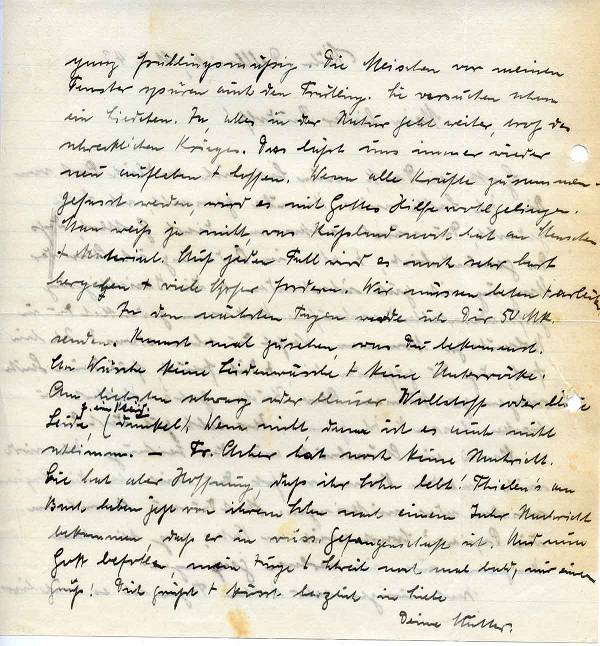 ganz frühlingsmäßig. Die Meischen vor meinem
Fenster spüren auch den Frühling. Sie versuchen schon
ein Liedchen. Ja, alles in der Natur geht weiter, trotz des
schrecklichen Krieges. Das läßt uns immer wieder
neu aufleben + hoffen. Wenn alle Kräfte zusammen-
gefasst werden, wird es mit Gottes Hilfe wohl gelingen.
Man weiß ja nicht, was Rußland noch hat an Menschen
+ Material. Auf jeden Fall wird es noch sehr hart
hergehen + viele Opfer fordern. Wir müssen beten + arbeiten
In den nächsten Tagen werde ich Dir 50 Mk.
senden. Kannst mal zusehen, was Du bekommst.
An Wäsche keine Seidenwäsche + keine Unterröcke.
Am liebsten schwarz oder blauer Wollstoff oder
z. ein Kleid.
Seide, (dunkel) Wenn nicht, dann ist es auch nicht
schlimm. – Fr. hat noch keine Nachricht.
Sie hat aber Hoffnung, daß ihr Sohn lebt! Thielen's am
Bach haben jetzt von ihrem Sohn nach einem Jahr Nachricht
bekommen, daß er in russ. Gefangenschaft ist. Und nun
Gott befohlen mein Junge + schreib noch mal bald, nur einen
Gruß! Dich grüßt + küsst herzlich in Liebe
Deine Mutter.